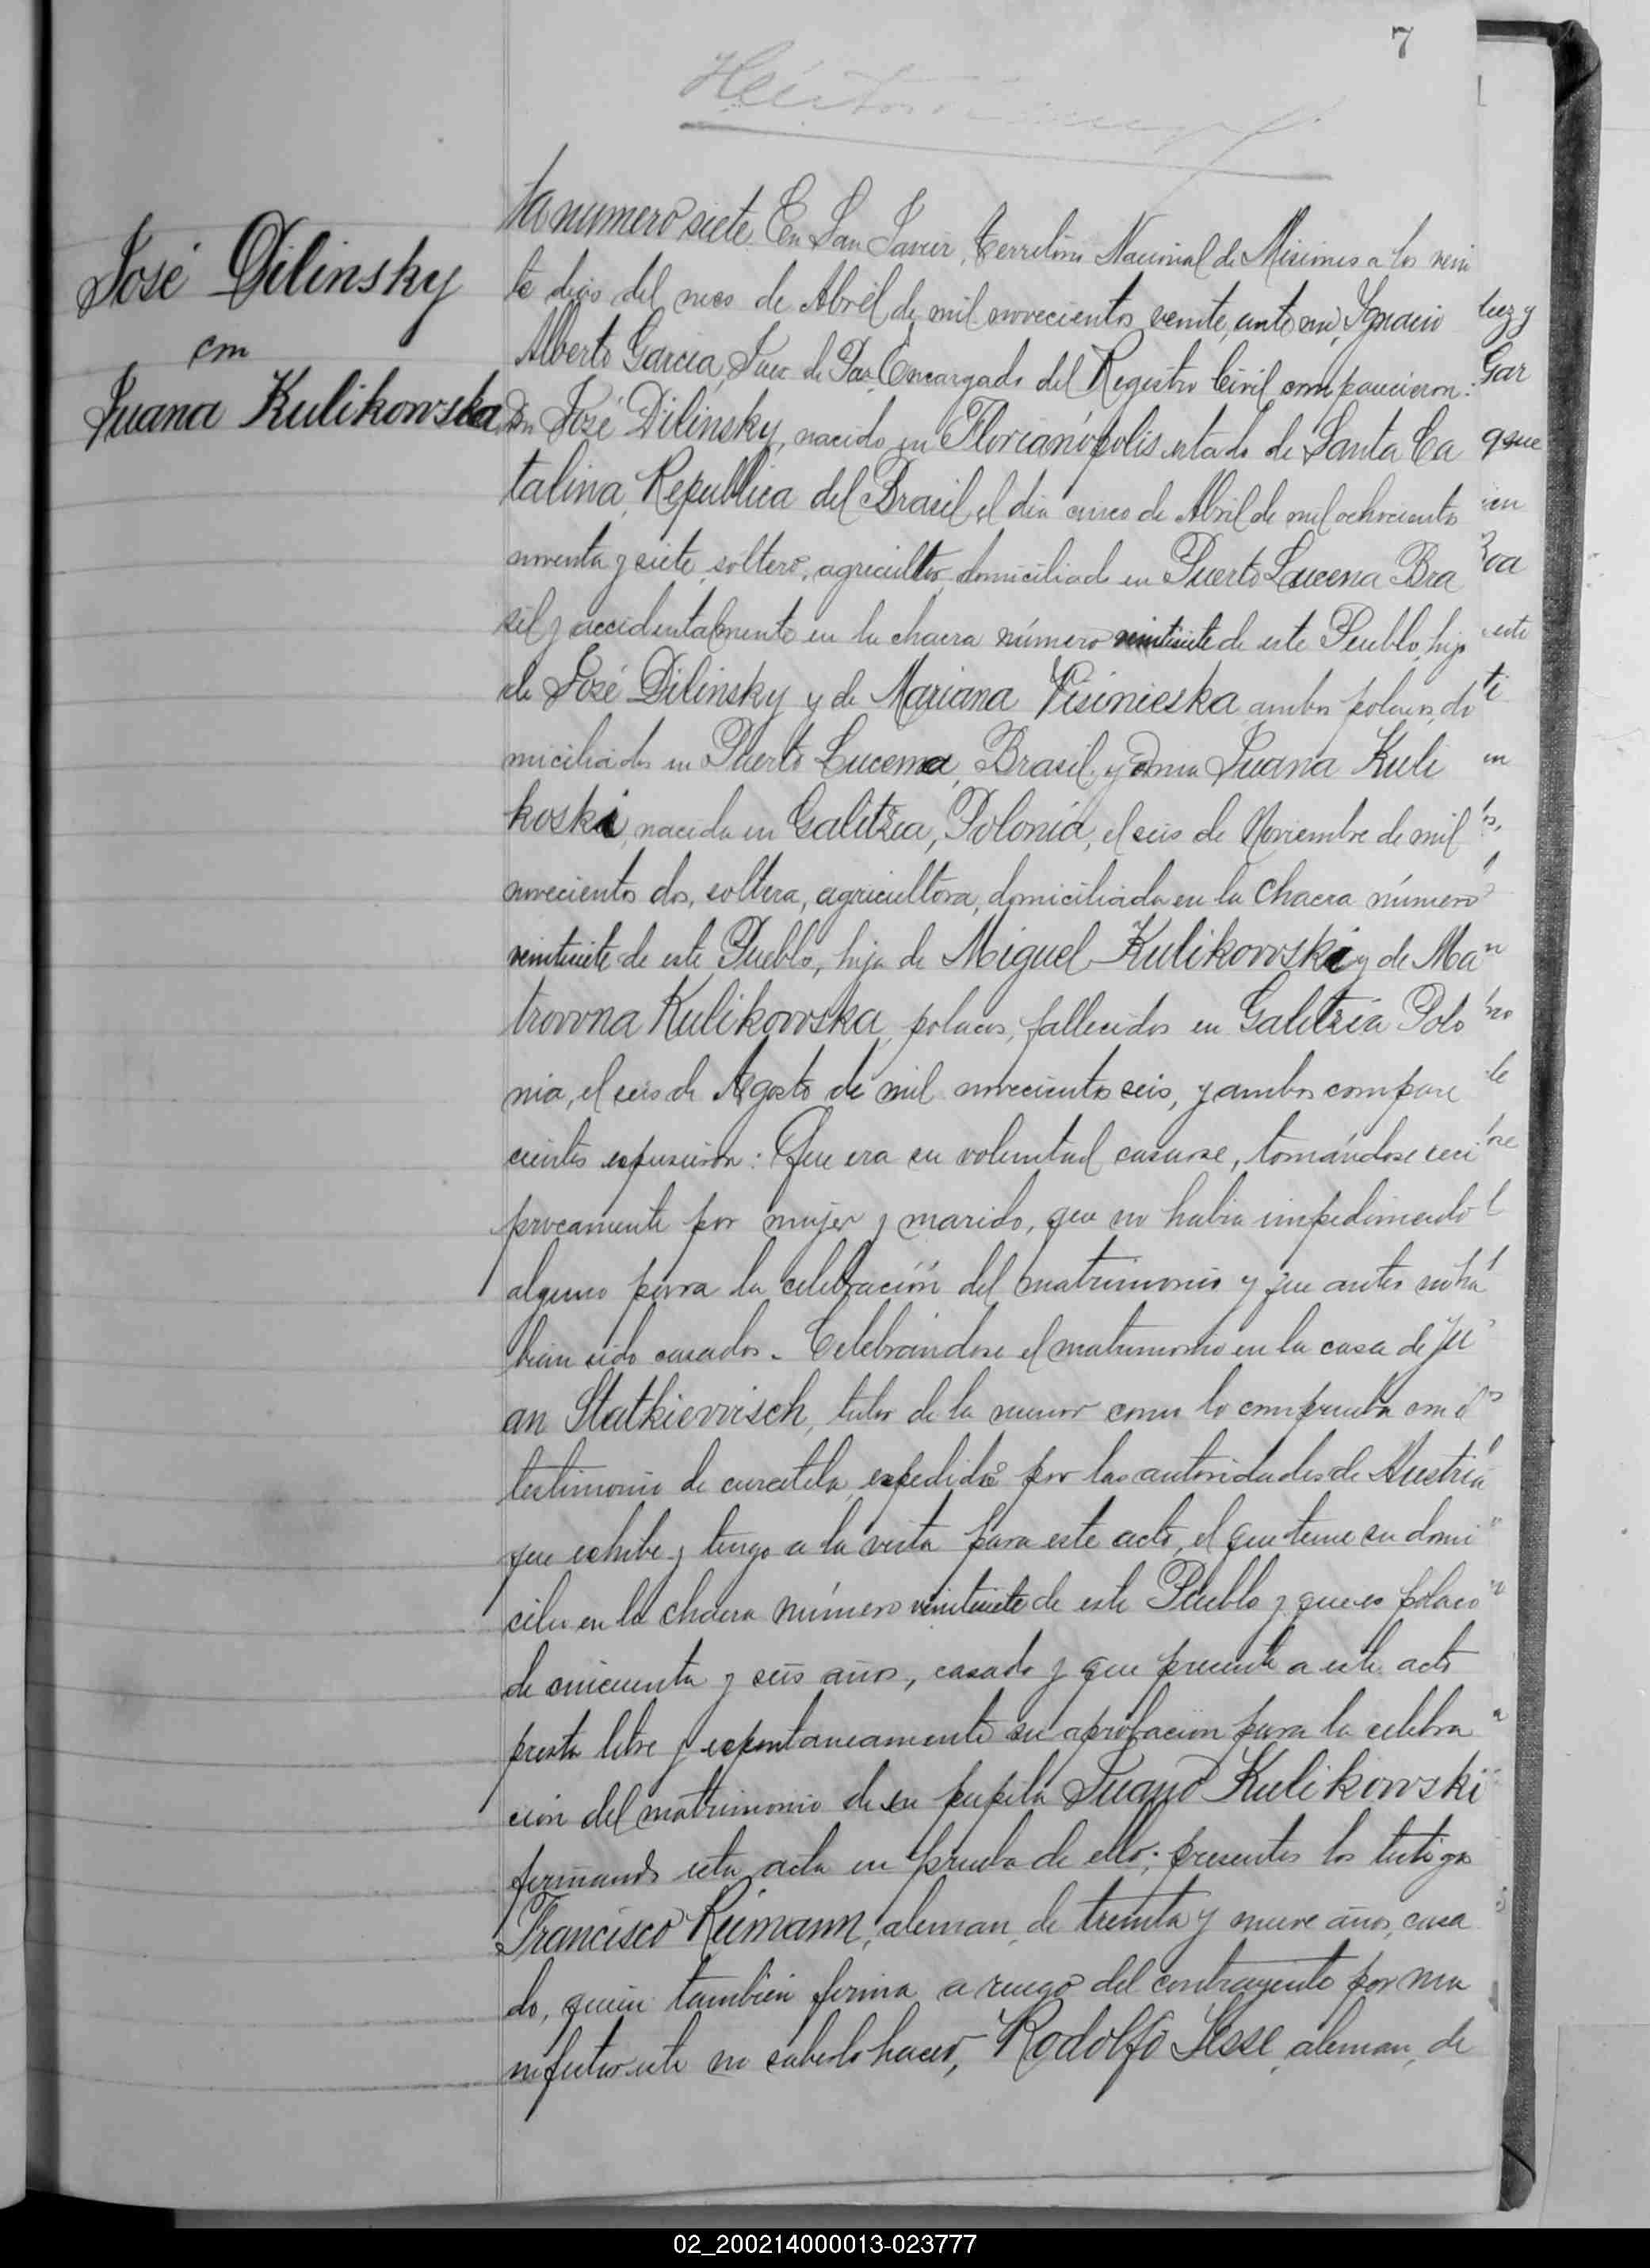 7
José Dilinsky
con
Juana Kulikowska
ta numero siete. En San Javier, territorio Nacional de Misiones a los vein
te dias del mes de Abril de mil novecientos veinte, ante mi, Ignacio
Alberto Garcia, Juez de Paz Encargado del Registro Civil comparecieron:
Don José Dilinsky, nacido en Florianópolis estado de Santa Ca
talina, Republica del Brasil, el dia cinco de Abril de mil ochocientos
noventa y siete, soltero, agricultor, domiciliado en Puerto Lucena Bra
sil y accidentalmente en la chacra número veintisiete de este Pueblo, hijo
de José Dilinsky y de Mariana Visinieska ambos polacos, do
miciliados en Puerto Lucena, Brasil, y doña Juana Kuli
koski, nacida en Galitzia, Polonia, el seis de Noviembre de mil
novecientos dos, soltera, agricultora, domiciliada en la chacra número
veintisiete de este Pueblo, hija de Miguel Kulikowski y de Ma
trovvna Kulikowska, polacos, fallecidos en Galitzia Polo
nia, el seis de Agosto de mil novecientos seis, y ambos compare
cientes espusieron: Que era su voluntad casarse, tomándose reci
procamente por mujer y marido, que no habia impedimento
alguno para la celebración del matrimonio y que antes no ha
bian sido casados. Celebrándose el matrimonio en la casa de Ju
an Statkievvisch, tutor de la menor como lo comprueba con el
testimonio de curatela, espedido por las autoridades de Austria
que exhibe y tengo a la vista para este acto, el que tiene su domi
cilio en la chacra número veintisiete de este Pueblo y que es polaco
de cincuenta y seis años, casado y que presente a este acto
presta libre y espontaneamente su aprobacion para la celebra
ción del matrimonio de su pupila Juana Kulikowski
firmando esta acta en prueba de ello; presentes los testigos
Francisco Reimann, aleman, de treinta y nueve años, casa
do, quien tambien firma a ruego del contrayente por ma
nifestar este no saberlo hacer, Rodolfo Sesse, aleman, de
02_200214000013-023777